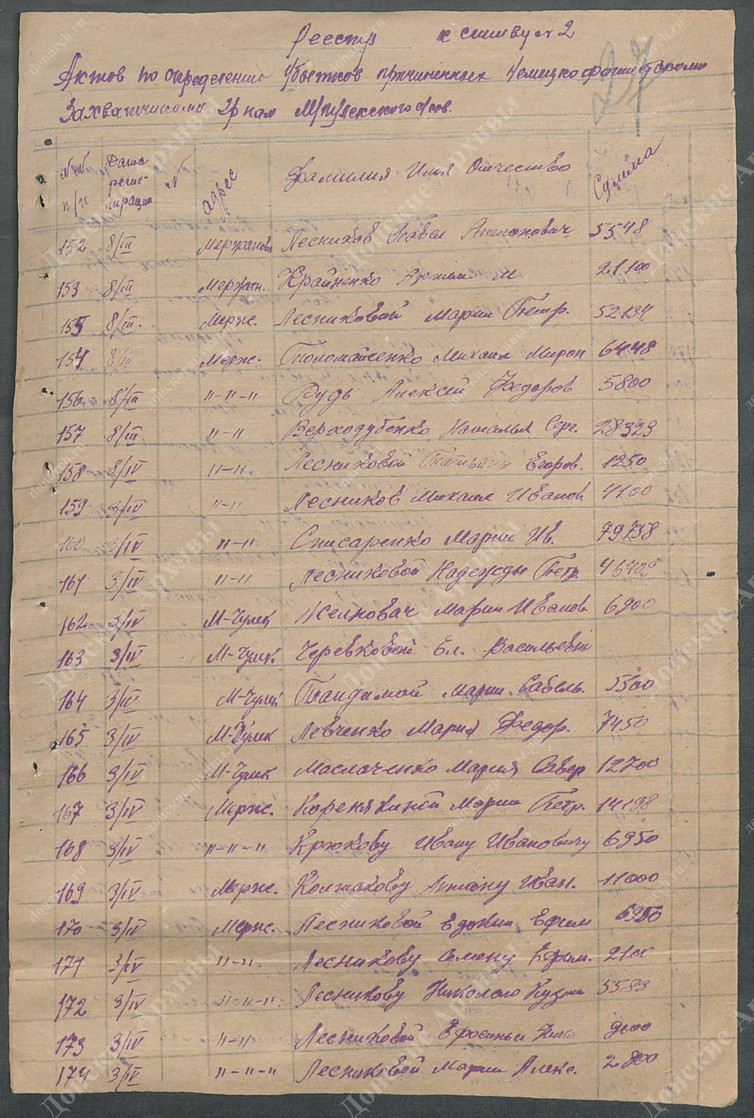 Реестр к списку № 2
27
Актов по определению убытков причиненных Немецко фашистскими
Захватчиками гр нам М/Чулекского
№№ п/п Дата регистрации № адрес Фамилия Имя Отчество Сумма
152 8/III Мержанова Лесников Павел Антонович 5548
153 8/III Мержан. Крайненко М 21100
155 8/III. Мерж. Лесниковой Марии Петр. 52134
154 8/III Мерж. Михаил Мирон 6448
156 8/III "-"-" Рудь Алексей Федоров 5800
157 8/III "-" Верходубенко Наталья Серг. 28329
158 8/IV "-" Лесниковой Татьяны Егоров. 1250
159 3/IV "-" Лесников Михаил Иванов 4100
160 3/IV "-" Списаренко Марии Ив. 79738
161 3/IV "-" Лесниковой Надежды Петр.
162 3/IV М-Чулек Марии Иванов 6900
163 3/IV М-Чулек. Черевковой Ел. Васильевн
164 3/IV М-Чулек Марии Савель. 5500
165 3/IV М-Чулек Левченко Мария Федор. 7450
166 3/IV М-Чулек Маслаченко Мария Савер 12700
167 3/IV Мерж. Коренякиной Марии Петр. 14198
168 3/IV "-"-" Крюкову Ивану Ивановичу 6950
169 3/IV Мерж. Колжакову Антону Иван. 11000
170 3/IV Мерж. Лесниковой Евдокии Ефим 6950
171 3/IV "-" Лесникову Семену Ефим. 2100
172 3/IV "-"-" Лесникову Николаю Кузьм 5583
173 3/IV "-" Лесниковой Ефросиньи 9000
174 3/IV "-"-" Лесниковой Марии Алекс. 2800